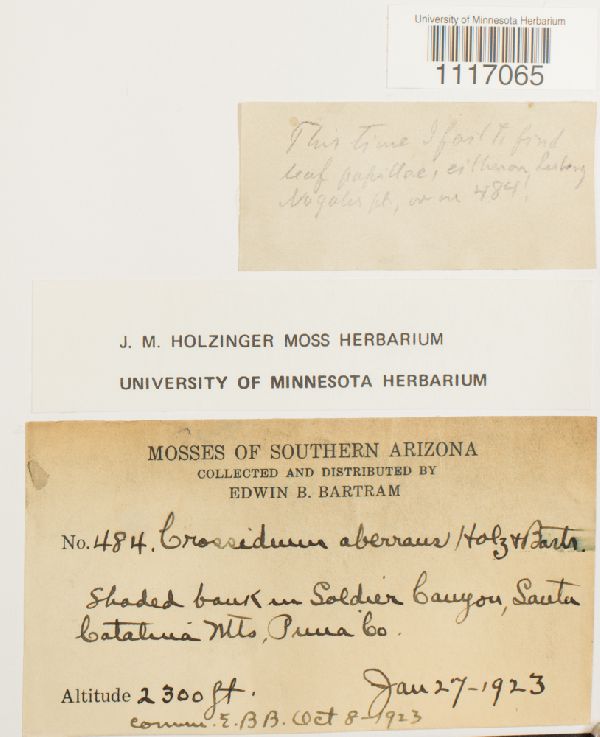 University of Minnesota Herbarium
1117065
This time I fail to find
leaf papillae, either on
Nogales pl, or on 484!
J. M. HOLZINGER MOSS HERBARIUM
UNIVERSITY OF MINNESOTA HERBARIUM
MOSSES OF SOUTHERN ARIZONA
COLLECTED AND DISTRIBUTED BY
EDWIN B. BARTRAM
No. 484. Crossidium aberrans Holz & Bartr.
Shaded bank in Soldier Canyon, Santa
Catalina Mts, Pima Co.
Altitude 2300 ft. Jan 27-1923
comm. E.B.B. Oct 8-1923